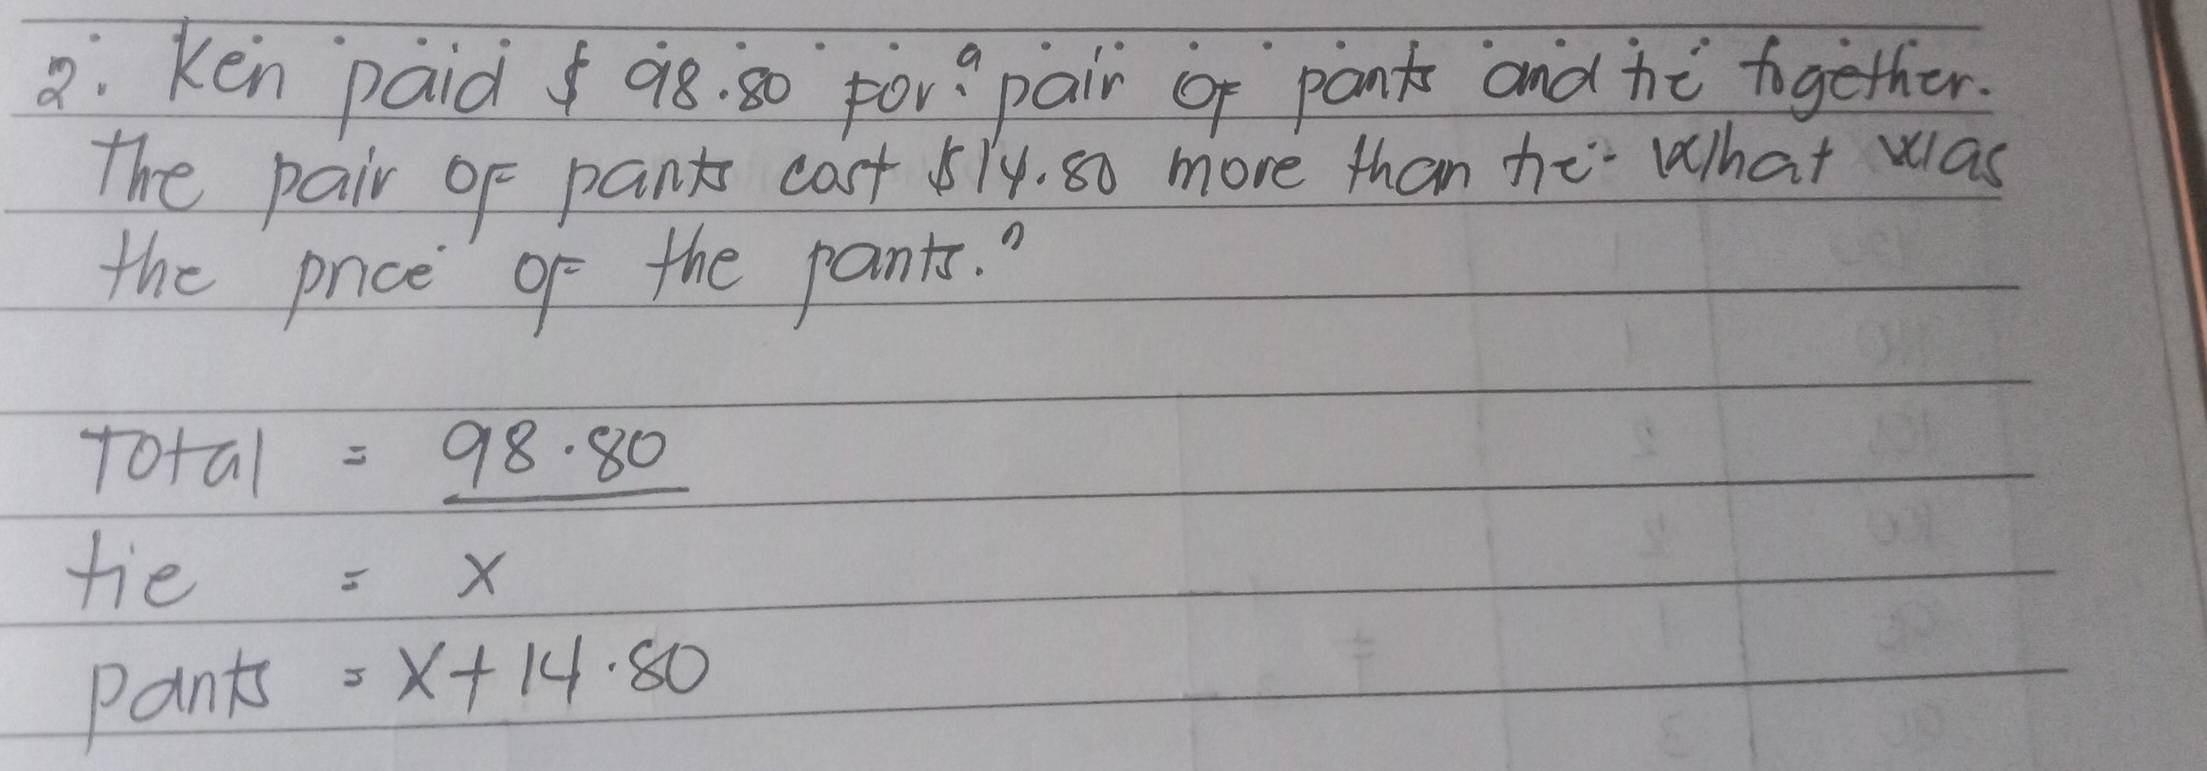 2. Ken paid $ 98.80 for a pair of pants and tie together.
The pair of pants cost $14.80 more than tie. What was
the price of the pants.?
Total = 98.80
tie = x
pants = x+14.80